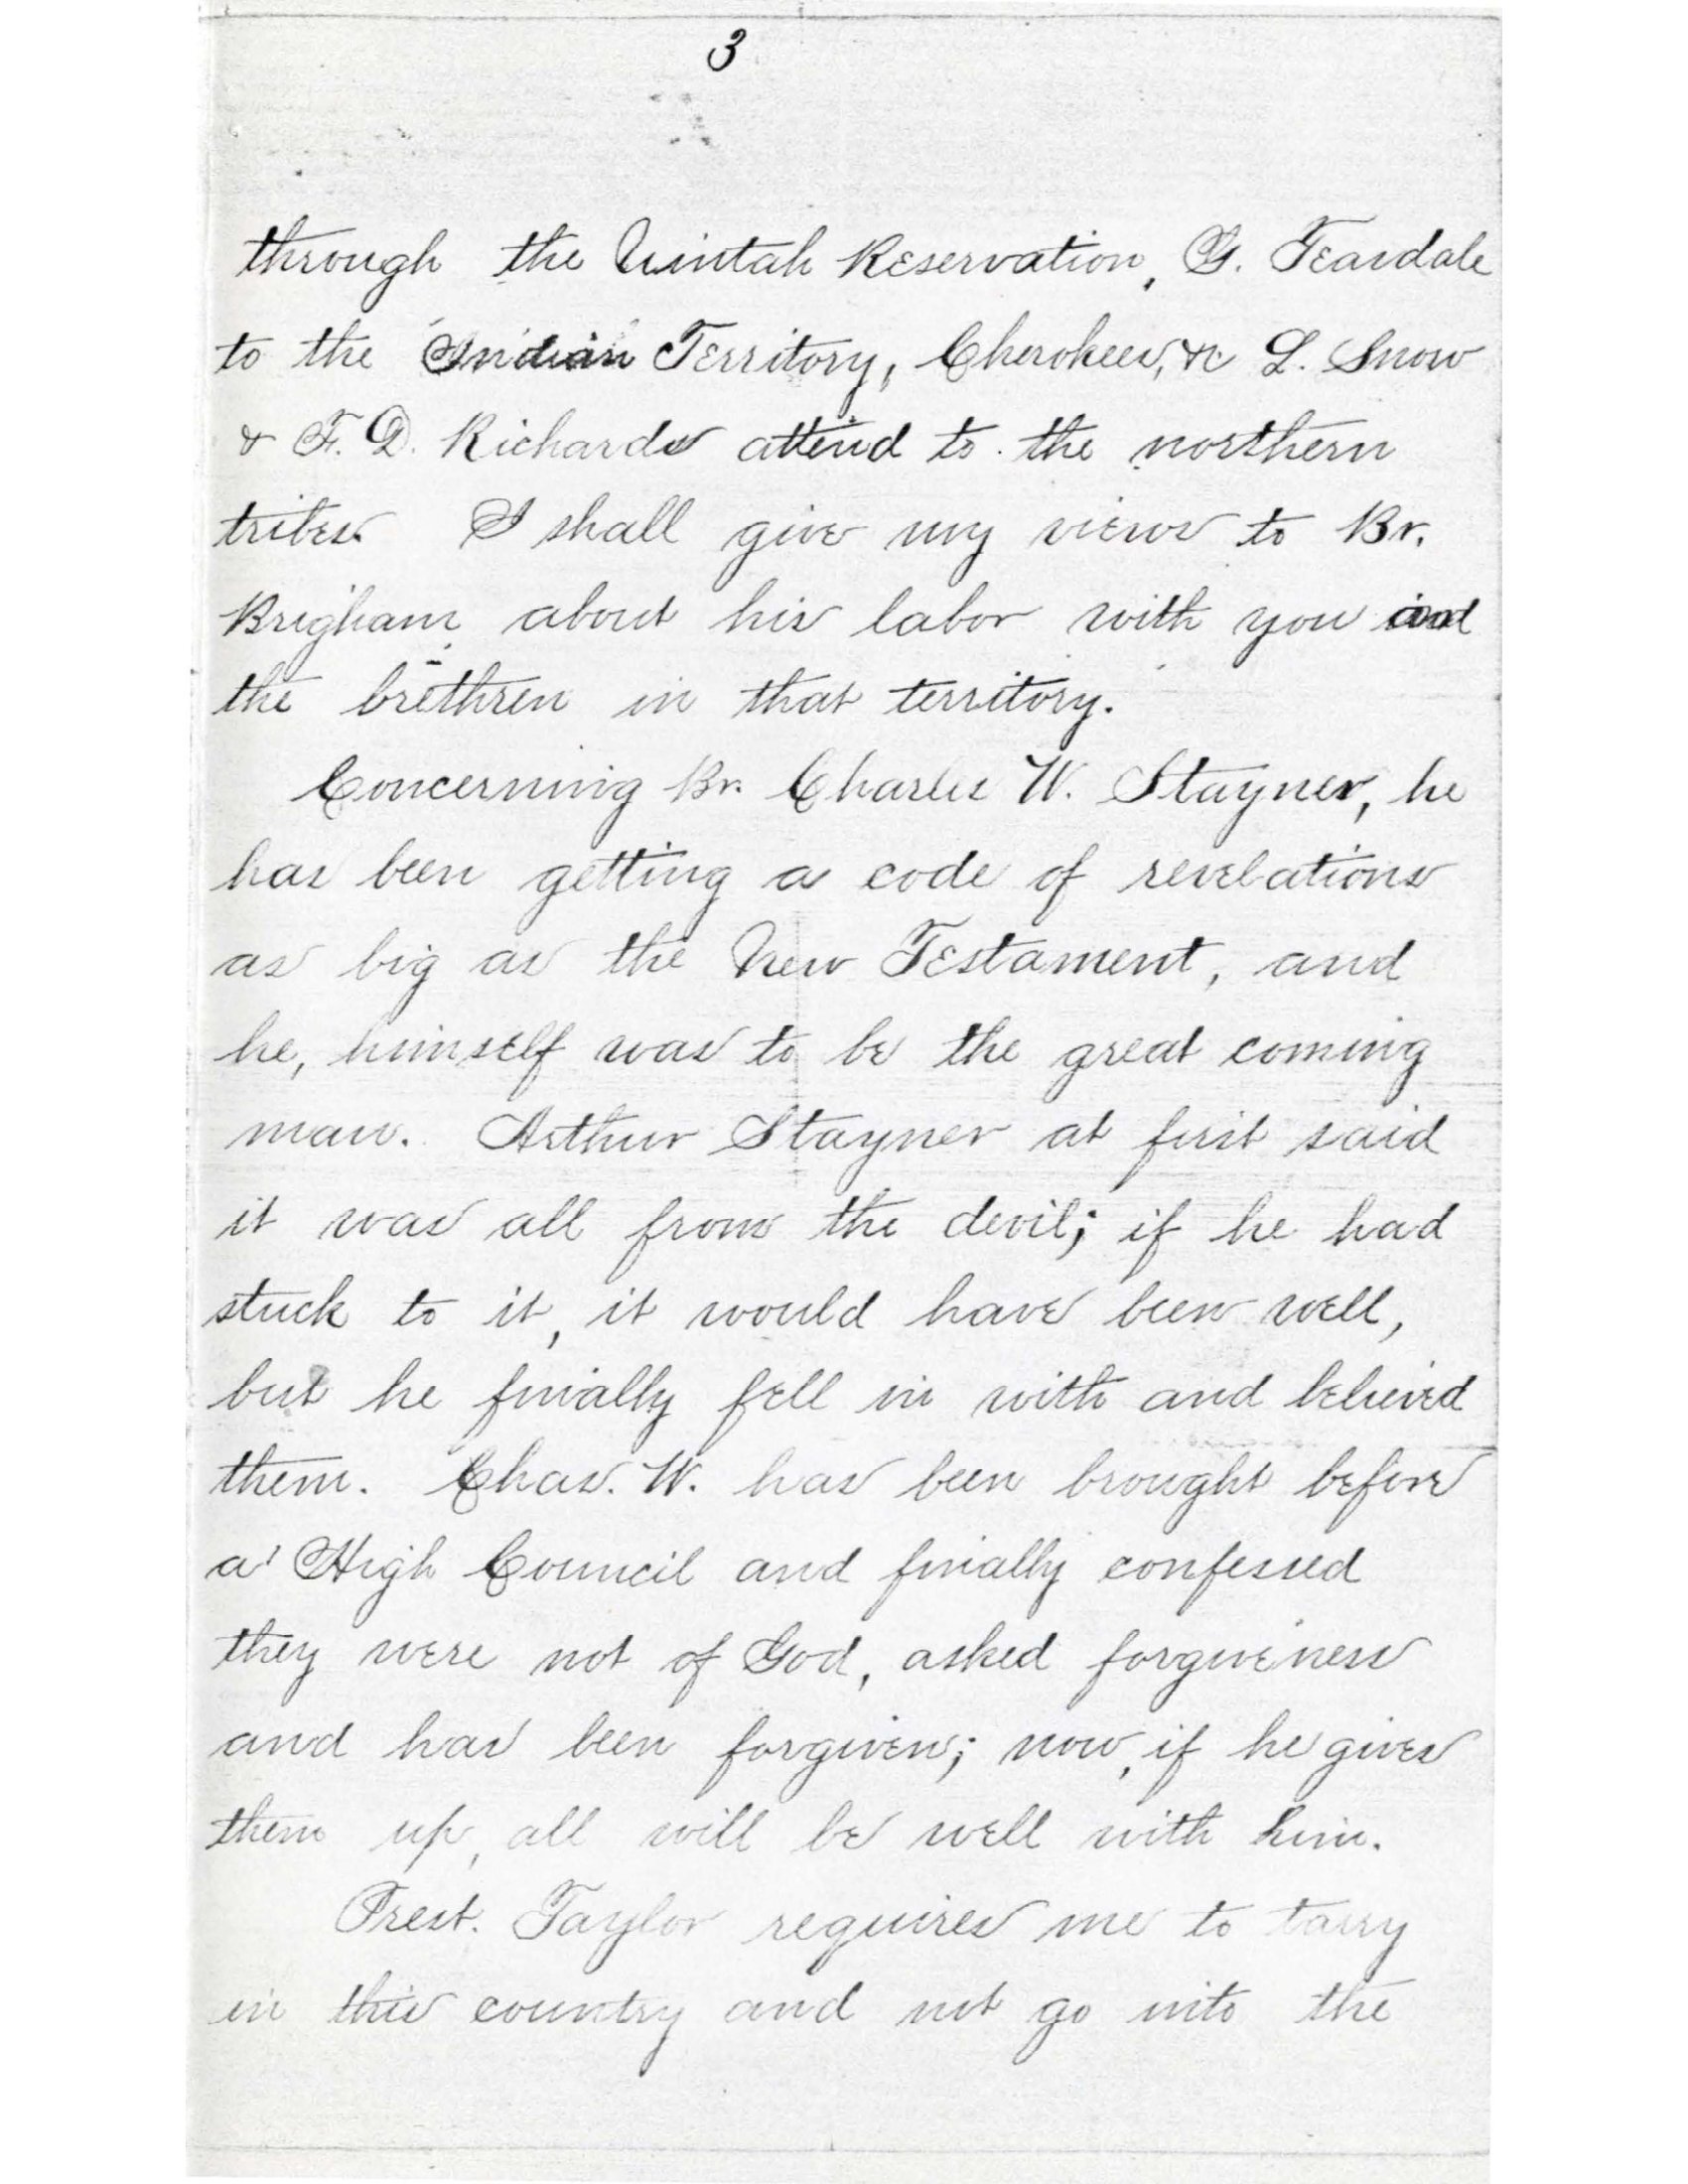 3
through the Uintah Reservation, G. Teasdale
to the Indian Territory, Cherokees, &c L. Snow
& F. D. Richards attend to the northern
tribes. I shall give my views to Br.
Brigham about his labor with you and
the brethren in that territory.
Concerning Br. Charles W. Stayner, he
has been getting a code of revelations
as big as the New Testament, and
he, himself was to be the great coming
man. Arthur Stayner at first said
it was all from the devil; if he had
stuck to it, it would have been well,
but he finially fell in with and believed
them. Chas. W. has been brought before
a High Council and finially confessed
they were not of God, asked forgiveness
and has been forgiven; now, if he gives
them up, all will be well with him.
Prest. Taylor requires me to tarry
in this country and not go into the